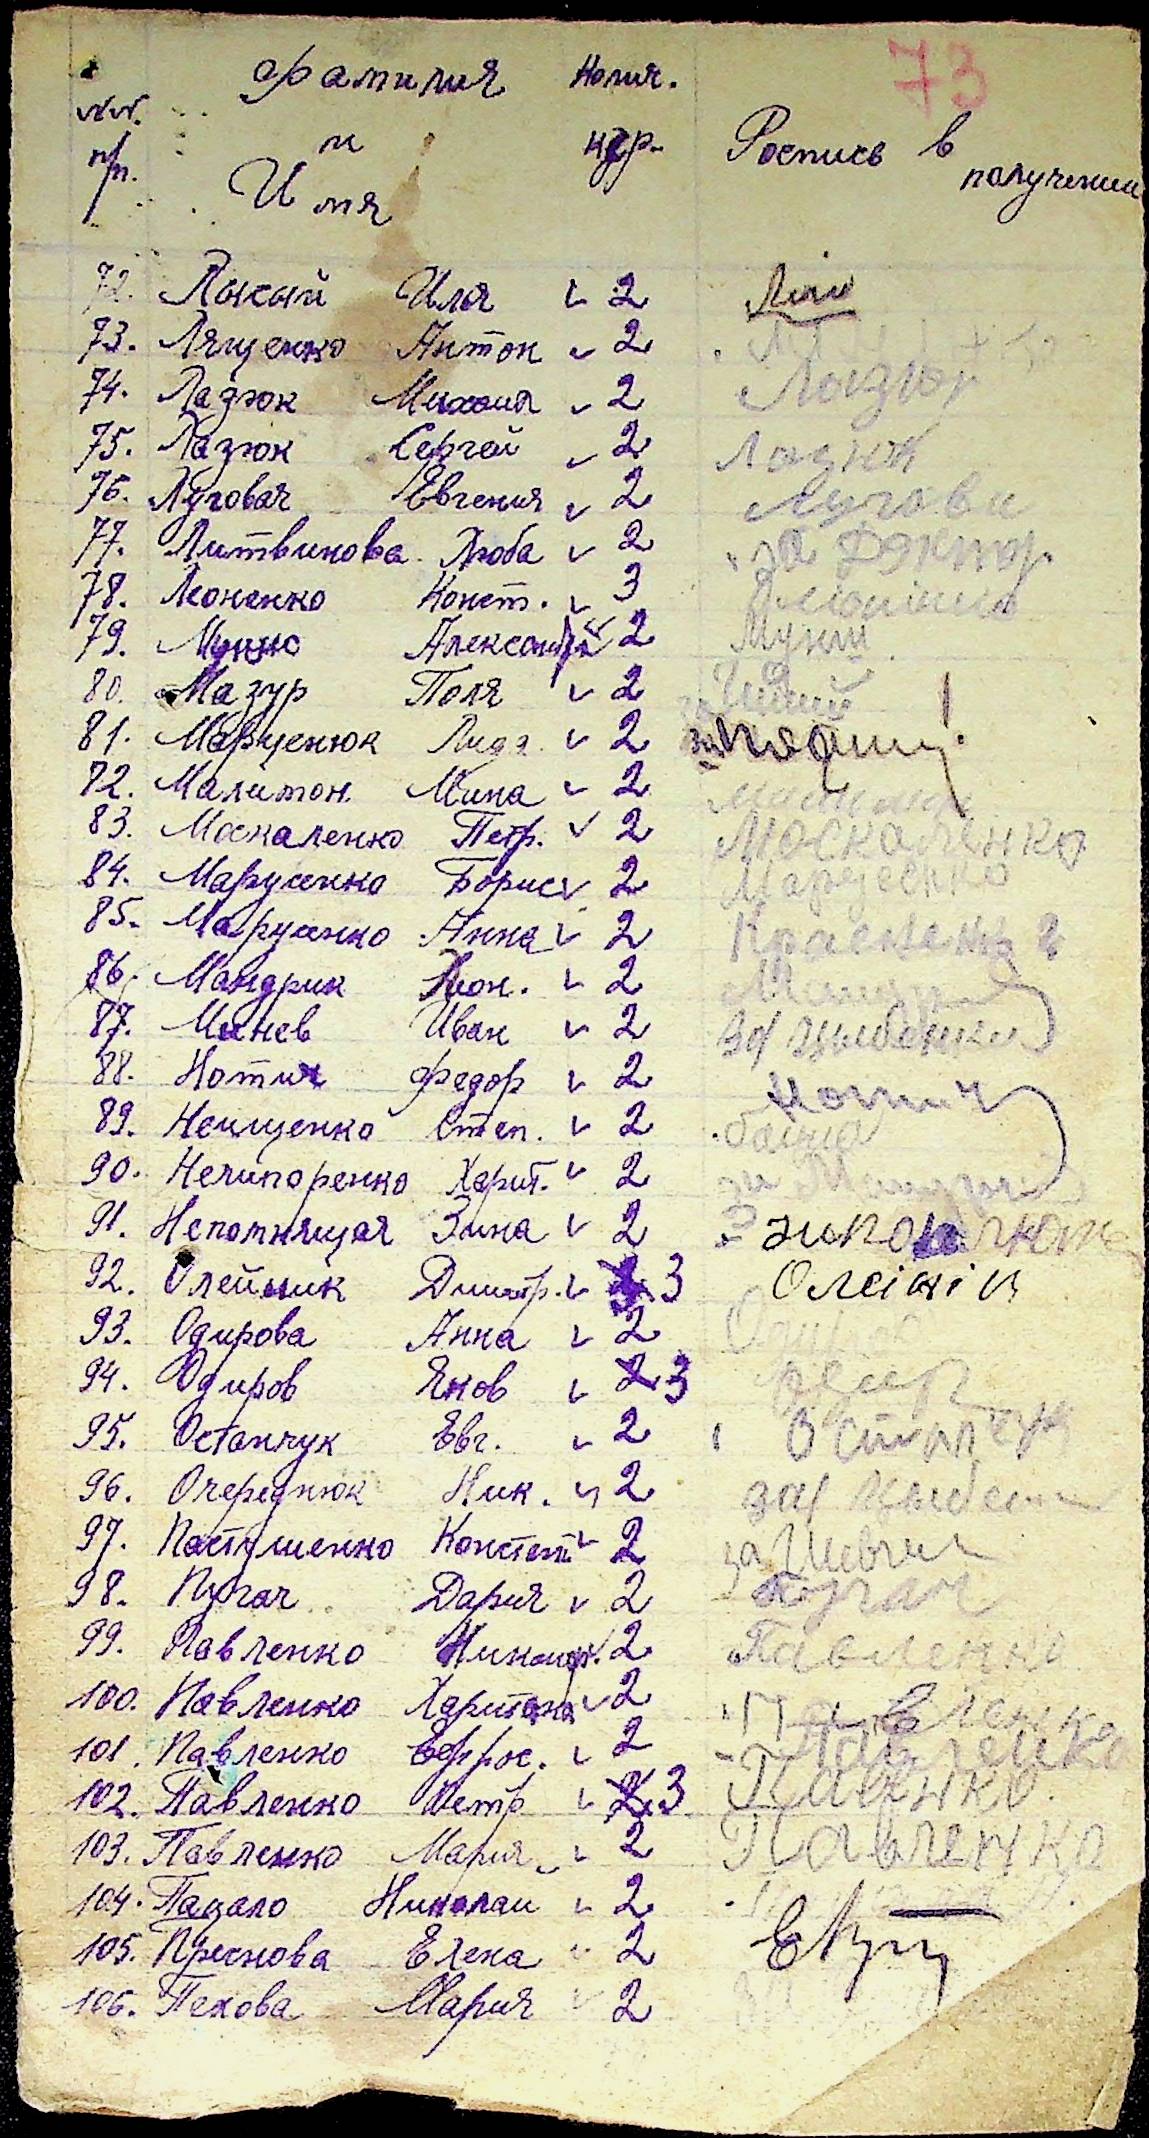 73
№№ Фамилия Колич.
п/п. и нер. Роспись в
Имя получении
72. Лысый Илья 2
73. Лященко Антон 2
74. Лазюк Михаил 2 Лазюк
75. Лазюк Сергей 2 Лазюк
76. Луговая Евгения 2 Лугова
77. Литвинова Люба 2 за
78. Леоненко Конст. 3
79. Мунно Александр 2 Мунн
80. Мазур Поля 2
81. Марценюк Лида 2 за
72. Малитон Мина 2
83. Москаленко Петр. 2 Москаленко
84. Марусенко Борис 2 Марусенко
85. Марусенко Анна 2
86. Мандрик Леон. 2
87. Минев Иван 2 за Цыбенко
88. Нотич Федор 2 Нотич
89. Нещенко Степ. 2
90. Нечипоренко Харит. 2 за
91. Непомнящая Зина 2
92. Олейник Дмитр. 3 Олеінік
93. Одирова Анна 2
94. Одиров Яков 2 3
95. Остапчук Евг. 2 Остапчук
96. Очереднюк Ник. 2 за Цыбенко
97. Пастушенко Констант 2 за
98. Пугач Дария 2 Пугач
99. Павленко Никанор. 2 Павленко
100. Павленко Харитона 2 Павленко
101. Павленко Ефрос. 2 Павленко
102. Павленко Петр 2 3 Павенко
103. Павленко Мария 2 Павленко
104. Падало Николай 2
105. Преснова Елена 2
106. Пехова Мария 2